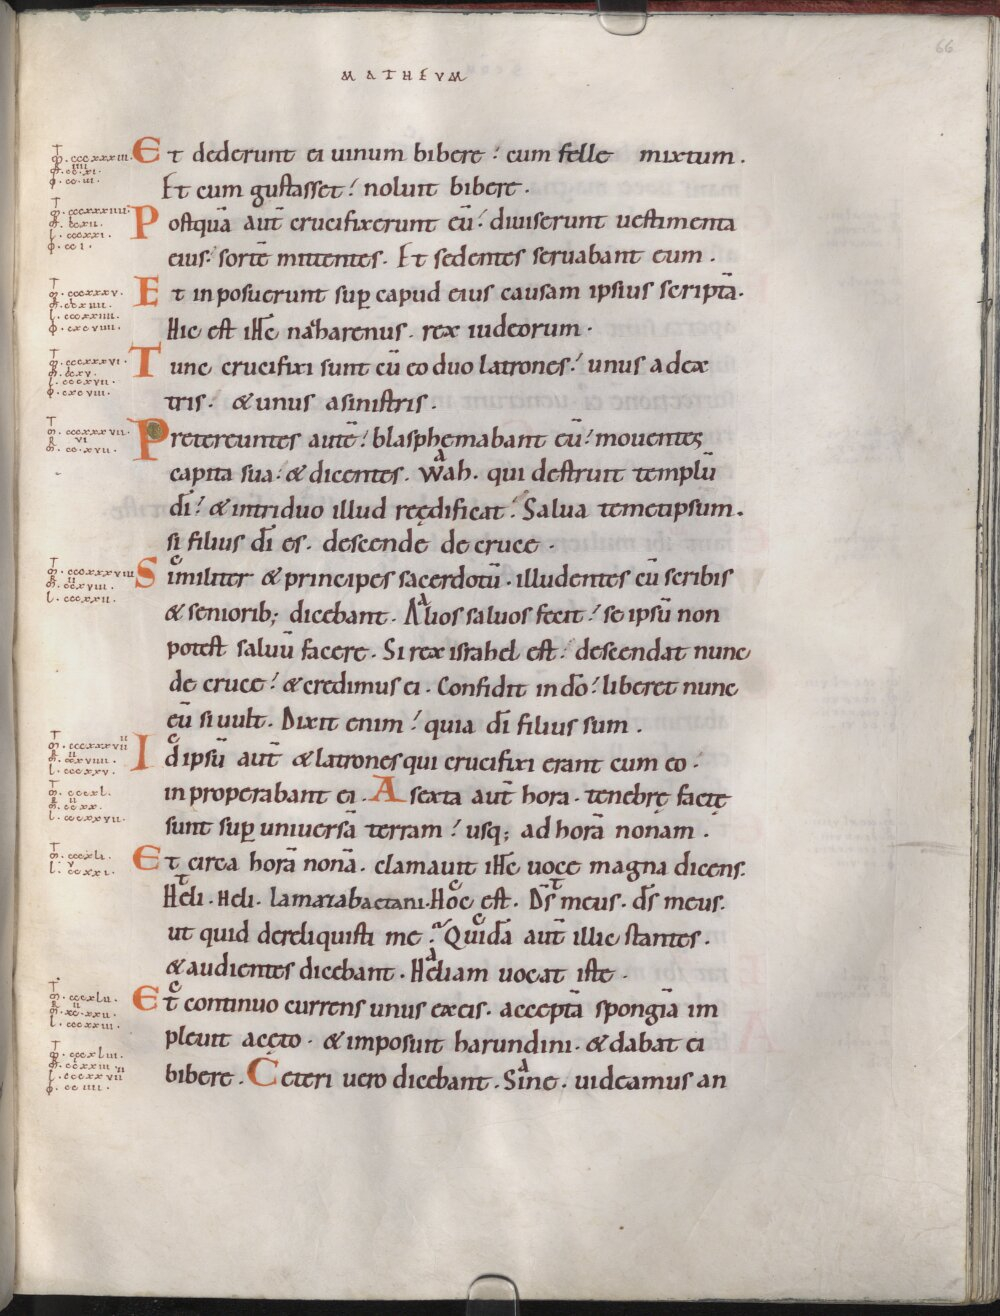 MATHEUM
66
Et dederunt ei uinum bibere. cum felle mixtum.
Et cum gustasset. noluit bibere.
Postquā aut̄ crucifixerunt eū. diuiserunt uestimenta
eius. sortē mittentes. Et sedentes seruabant eum.
Et inposuerunt sup̱ capud eius causam ipsius scriptā.
Hic est ih̄c nazarenus. rex iudeorum.
Tunc crucifixi sunt cū eo duo latrones. unus a dex
tris. & unus a sinistris.
Pretereuntes autē. blasphemabant eū. mouentes
capita sua. & dicentes. Wah. qui destruit templū
dī. & in triduo illud reędificat. Salua temetipsum.
si filius dī es. descende de cruce.
Similiter & principes sacerdotū. illudentes cū scribis
& seniorib; dicebant. Alios saluos fecit. se ipsū non
potest saluū facere. Si rex israhel est. descendat nunc
de cruce. & credimus ei. Confidit in dō. liberet nunc
eū si uult. Dixit enim. quia dī filius sum.
Id ipsū aut̄ & latrones qui crucifixi erant cum eo.
inproperabant ei. A sexta aut̄ hora. tenebrę factę
sunt sup̱ uniuersā terram. usq; ad horā nonam.
Et circa horā nonā. clamauit ih̄c uoce magna dicens.
Heli. Heli. lamazabactani. Hoc est. Ds̄ meus. ds̄ meus.
ut quid dereliquisti me. Quidā aut̄ illic stantes.
& audientes dicebant. Heliam uocat iste.
Et continuo currens unus ex eis. acceptā spongiā im
pleuit acęto. & imposuit harundini. & dabat ei
bibere. Ceteri uero dicebant. Sine. uideamus an